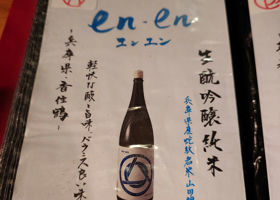 en-en
エンエン
生酛吟醸純米
兵庫県産蛇紋岩米山田錦
軽快な酸と旨味、バランス良い味
~兵庫県・香住鶴~